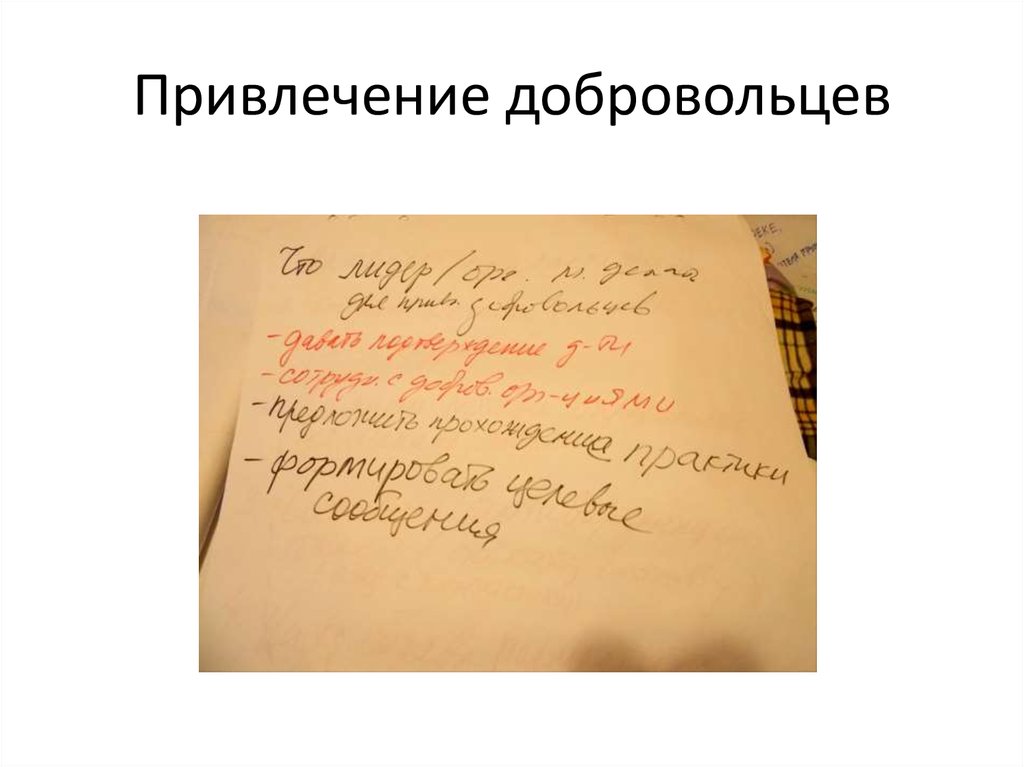 Привлечение добровольцев
Что лидер/орг. м. делать
для привл. добровольцев
- давать подтверждение д-ти
- сотрудн. с добров. орг-циями
- предложить прохождение практики
- формировать целевые
сообщения